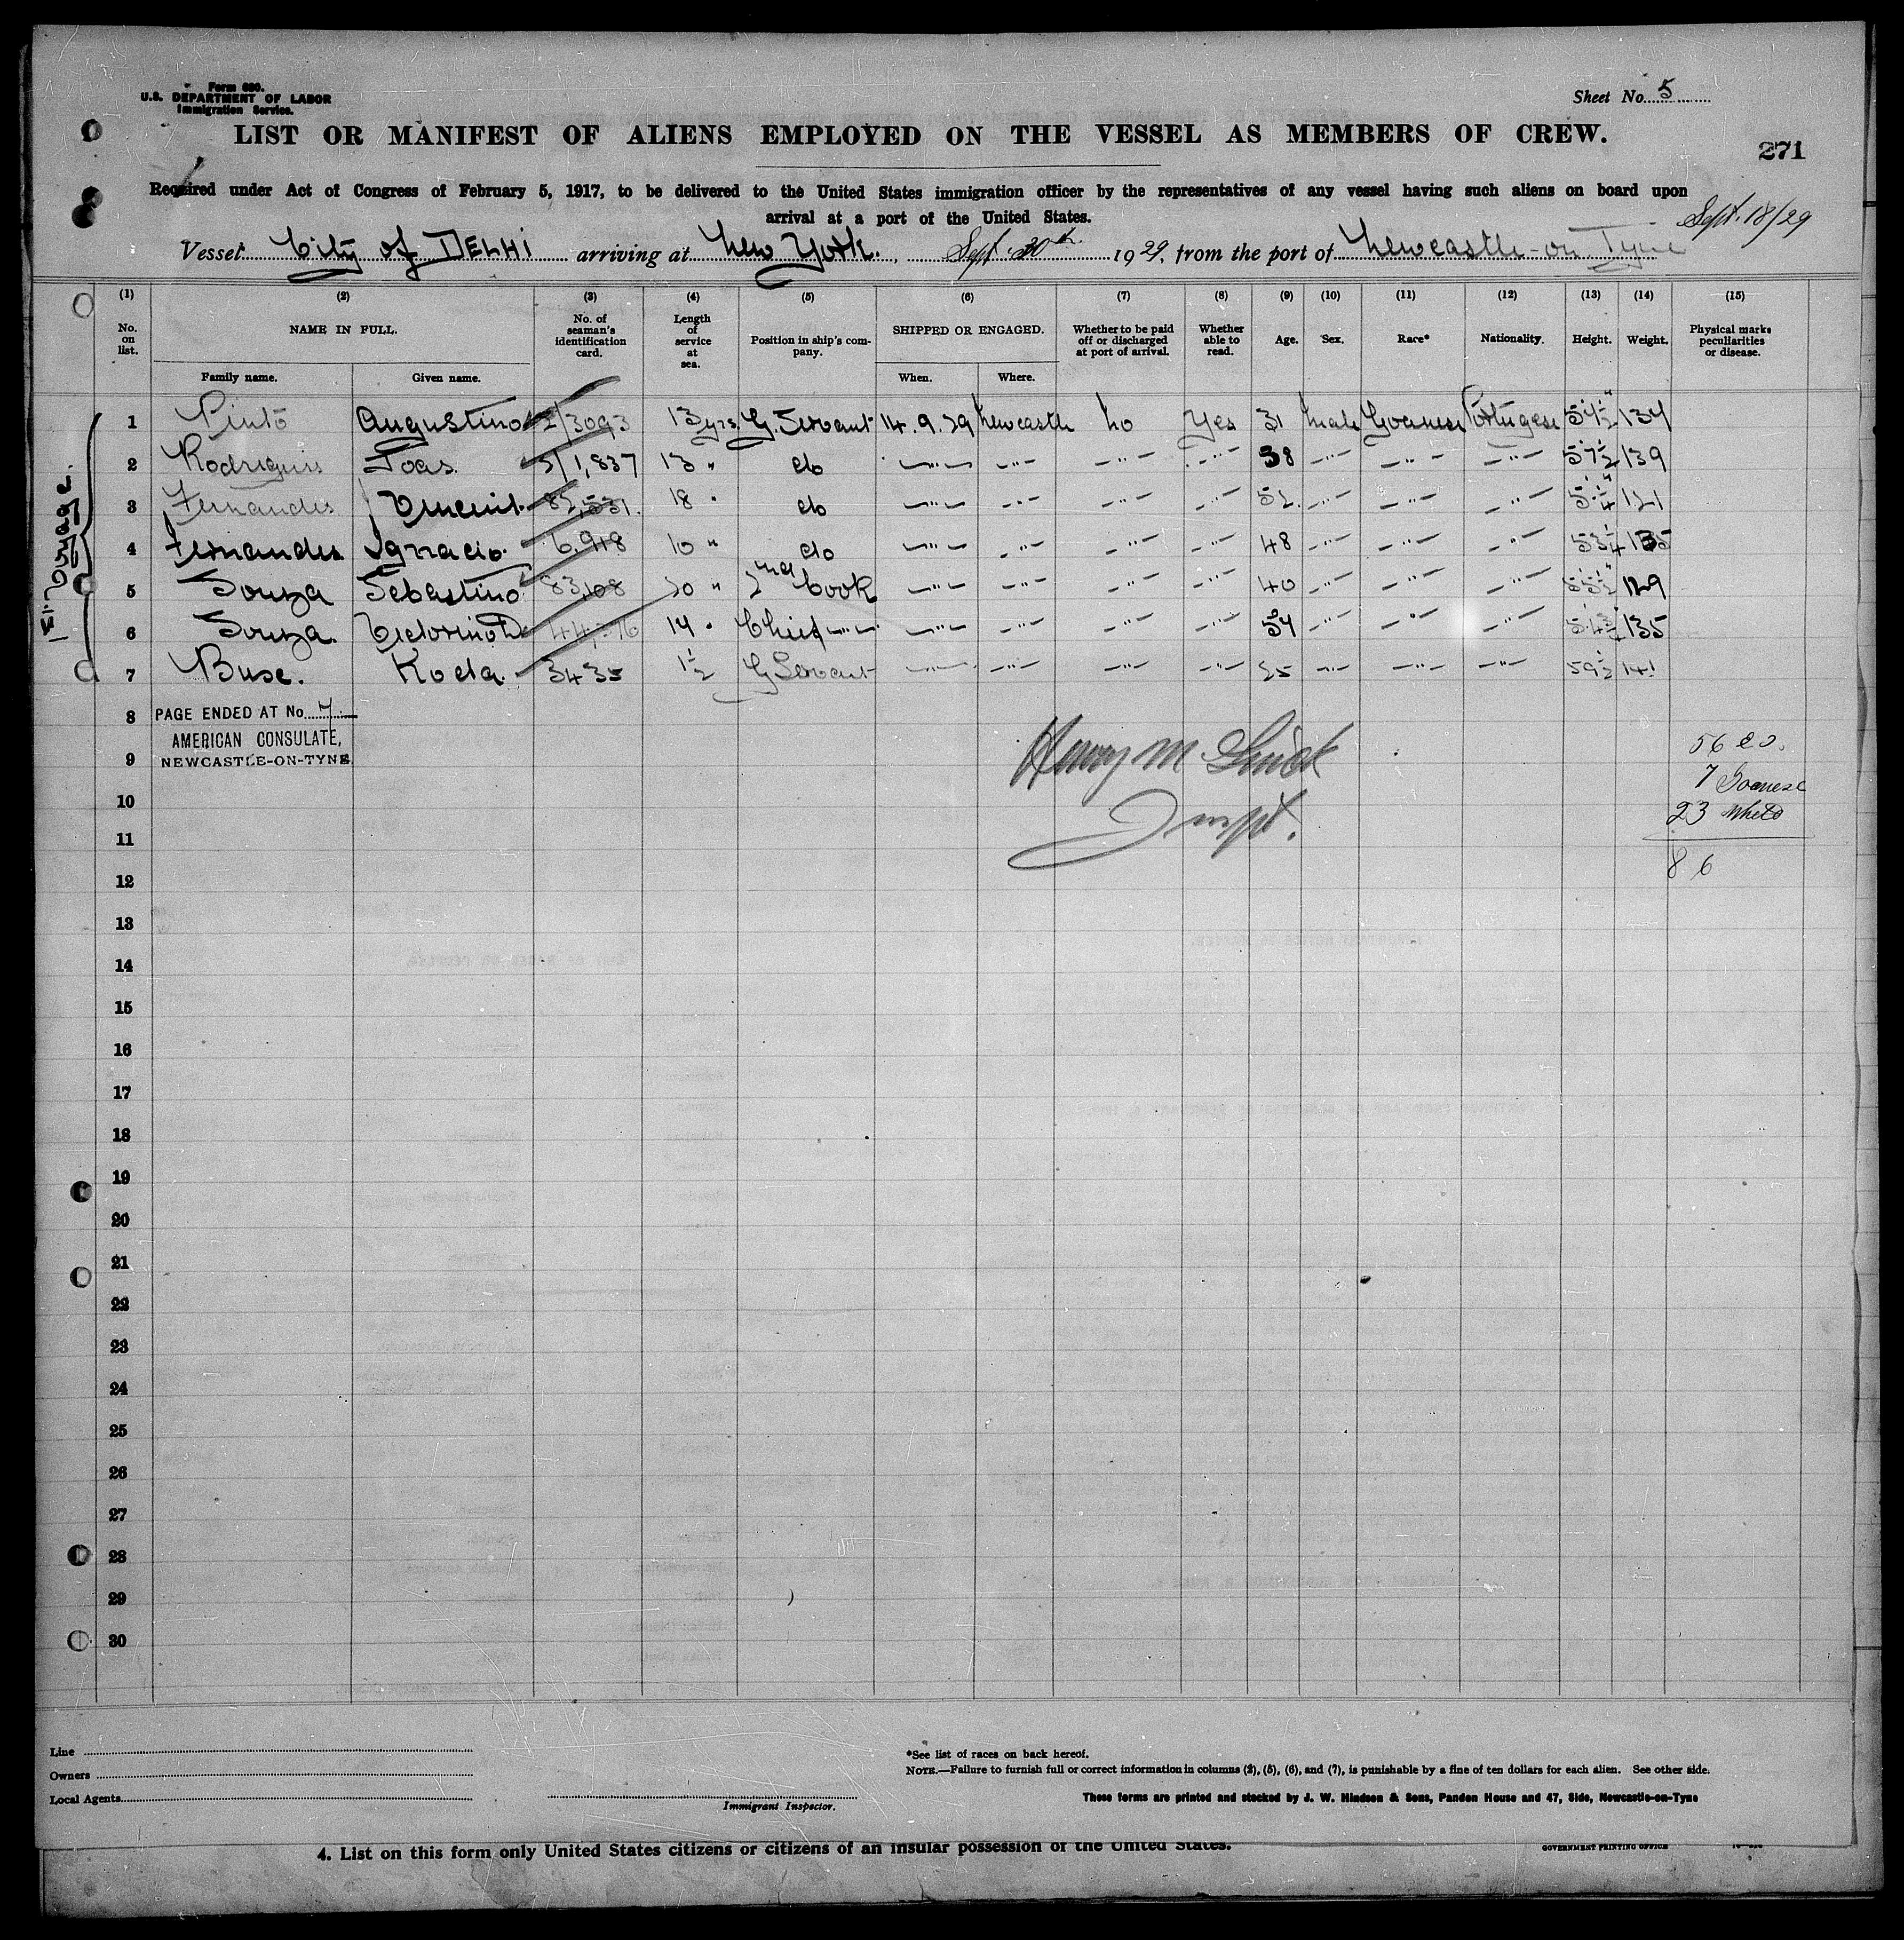 Form 680.
U.S. DEPARTMENT OF LABOR
Immigration Service.
Sheet No. 5
LIST OR MANIFEST OF ALIENS EMPLOYED ON THE VESSEL AS MEMBERS OF CREW.
271
Required under Act of Congress of February 5, 1917, to be delivered to the United States immigration officer by the representatives of any vessel having such aliens on board upon
arrival at a port of the United States.
Sept. 18/29
Vessel City of DELHI arriving at New York. Sept. 30th 1929, from the port of Newcastle-on-Tyne
(1) (2) (3) (4) (5) (6) (7) (8) (9) (10) (11) (12) (13) (14) (15)
No. on list. NAME IN FULL. No. of seaman's identification card. Length of service at sea. Position in ship's company. SHIPPED OR ENGAGED. Whether to be paid off or discharged at port of arrival. Whether able to read. Age. Sex. Race* Nationality. Height. Weight. Physical marks peculiarities or disease.
Family name. Given name. When. Where.
1st Voyage.
1 Pinto Augustino 2/3093 13 yrs G. Servant 14.9.29 Newcastle No Yes 31 Male Goanese Portugese 5'4½" 134
2 Rodriguis Joas. 1,837 13 " do —"— —"— —"— —"— 38 —"— —"— —"— 5'7½ 139
3 Fernandes 82,531. 18 " do —"— —"— —"— —"— 52. —"— —"— —"— 121
4 Fernandes Ignacio. 6,918 10 " do —"— —"— —"— —"— 48 —"— —"— —"— 135
5 Souza Sebastino 83,108 20 " 2nd Cook —"— —"— —"— —"— 40 —"— —"— —"— 5'5½" 129
6 Souza. 14 " Chief —"— —"— —"— —"— —"— 54 —"— —"— —"— 135
7 Buse. Koda. 3435 1½ G Servant —"— —"— —"— —"— 25 —"— —"— —"— 59½ 141
8 PAGE ENDED AT No. 7
AMERICAN CONSULATE,
9 NEWCASTLE-ON-TYNE.
Henry M
Inspt.
56
7 Goanese
23 White
86
10
11
12
13
14
15
16
17
18
19
20
21
22
23
24
25
26
27
28
29
30
Line
Owners
Local Agents
Immigrant Inspector.
*See list of races on back hereof.
NOTE.—Failure to furnish full or correct information in columns (2), (5), (6), and (7), is punishable by a fine of ten dollars for each alien. See other side.
These forms are printed and stocked by J. W. Hindson & Sons, Pandon House and 47, Side, Newcastle-on-Tyne
4. List on this form only United States citizens or citizens of an insular possession of the United States.
GOVERNMENT PRINTING OFFICE